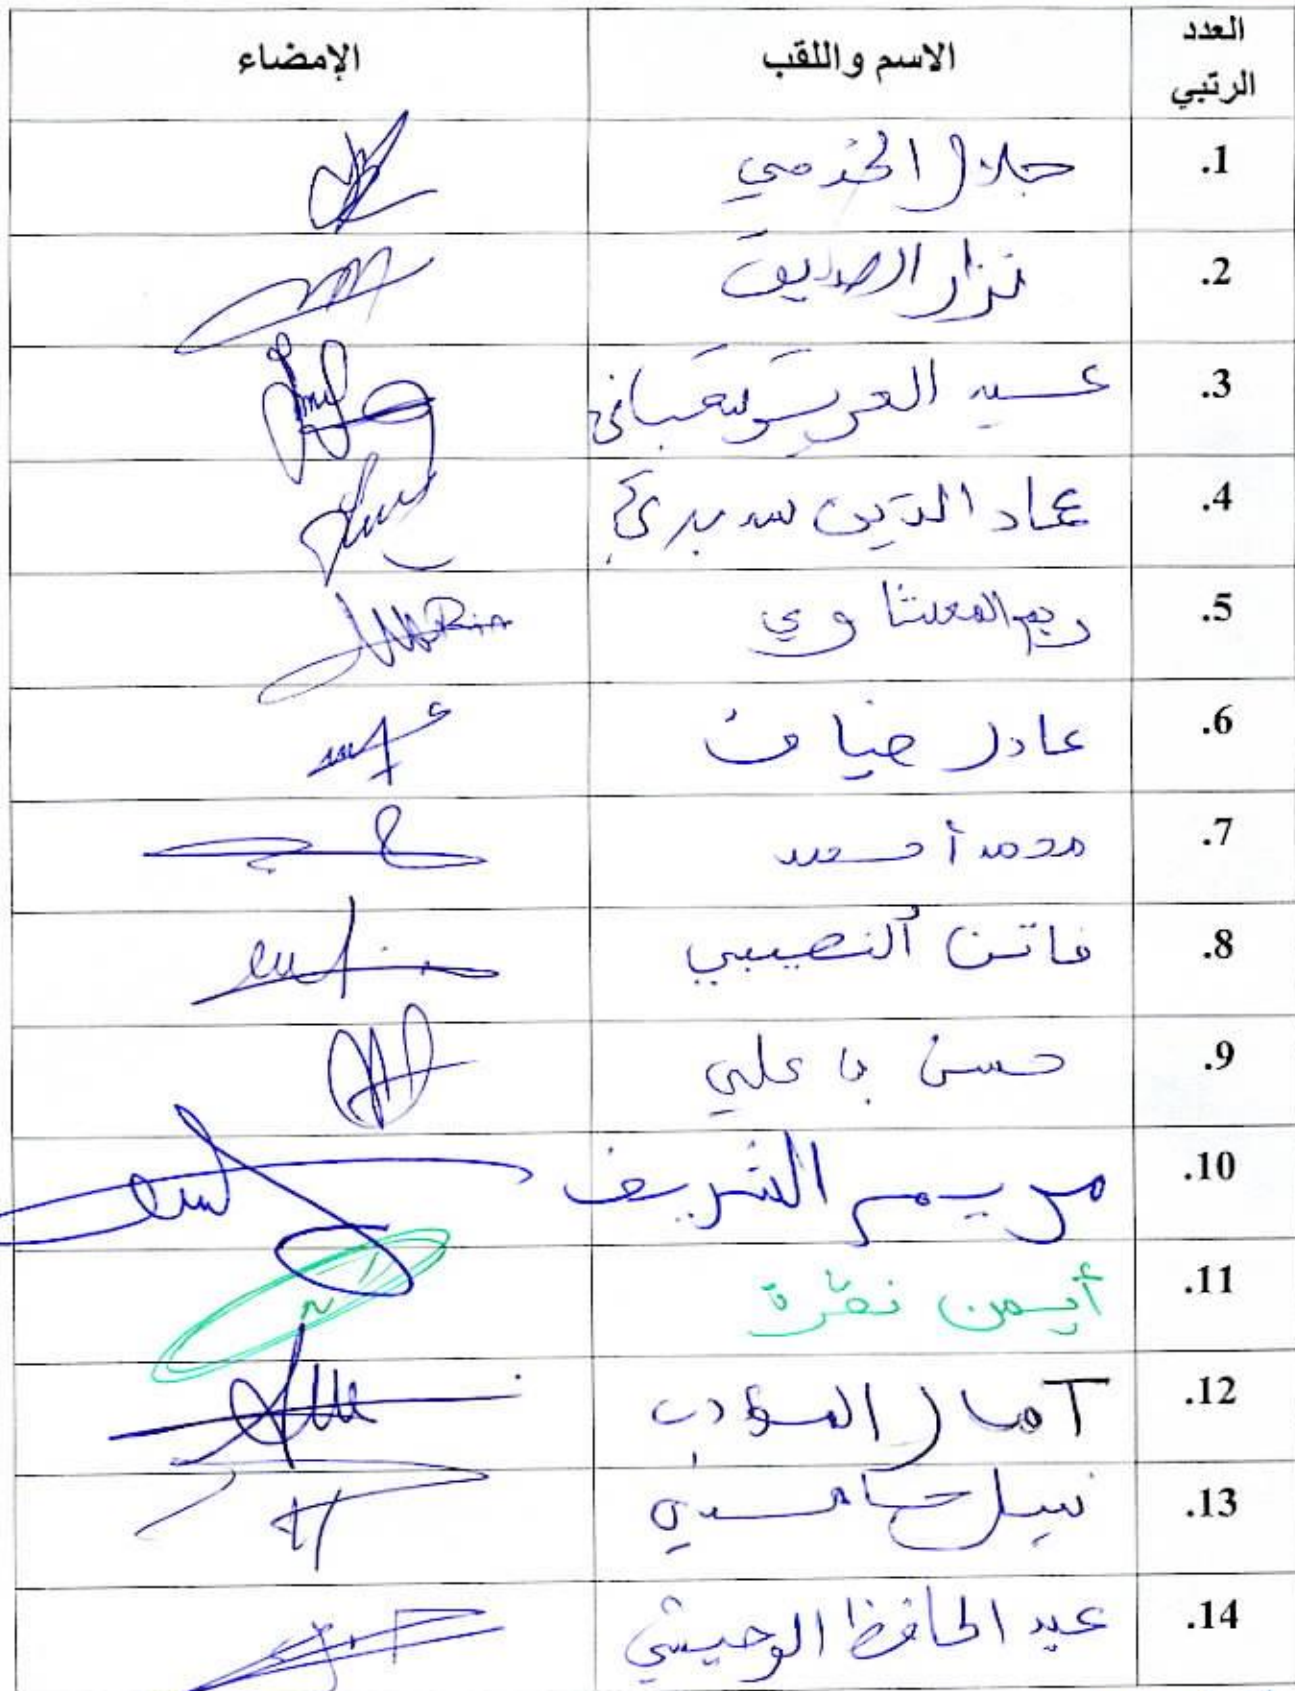 العدد الرتبي الاسم واللقب الإمضاء
1. جلال الخذمي
2. نزار الصديق
3. عبد العزيز شعباني
4. عماد الدين سديري
5. ريم المعشاوي
6. عادل ضياف
7. محمد أحمد
8. فاتن النصيبي
9. حسن باعلي
10. مريم الشريف
11. أيمن نقرة
12. آمال المؤدب
13. نبيل حمايدي
14. عبد الحافظ الوحيشي